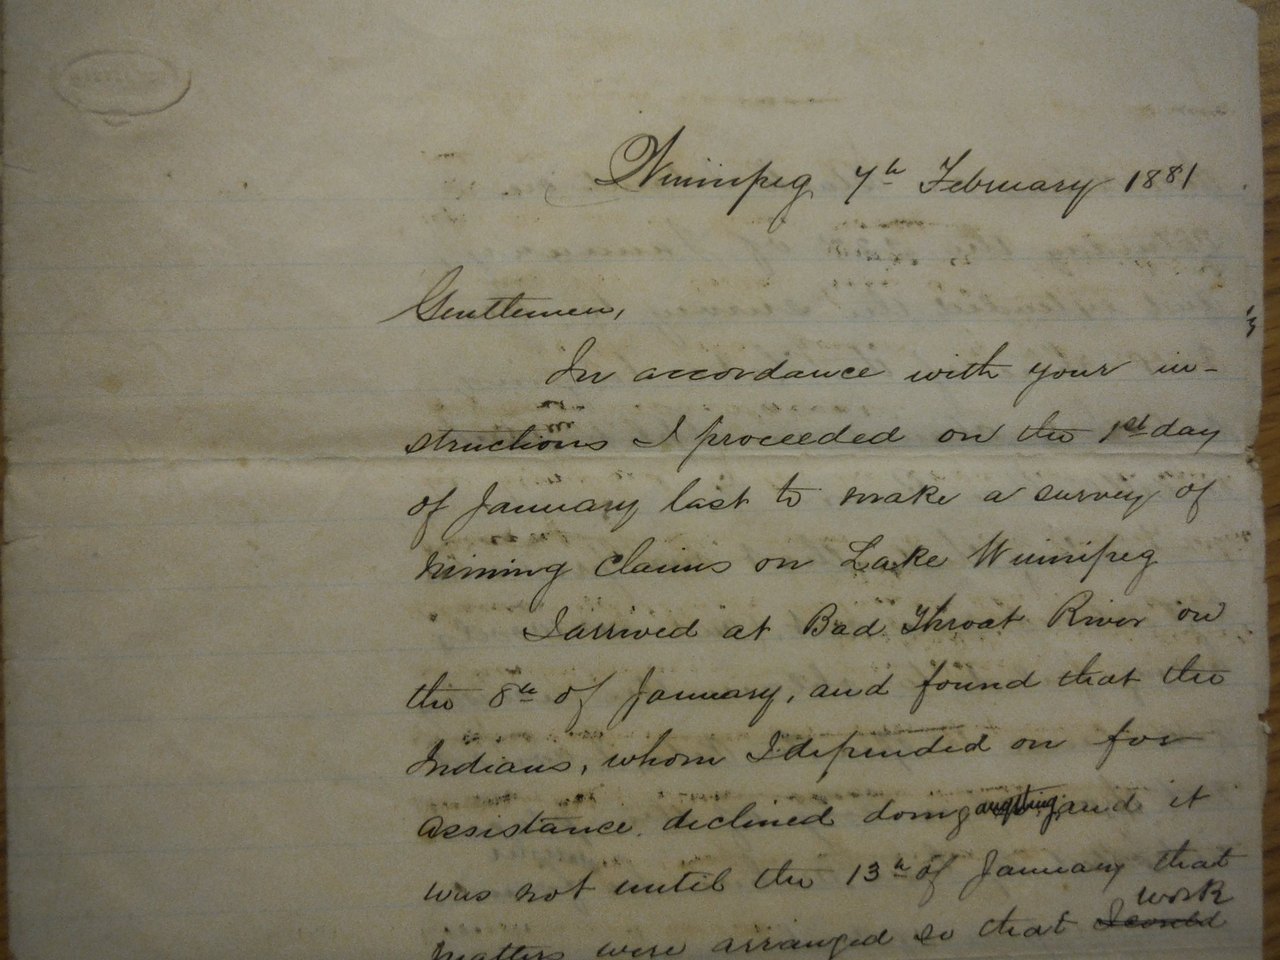 Winnipeg 7th February 1881
Gentlemen,
In accordance with your in-
structions I proceeded on the 1st day
of January last to make a survey of
mining claims on Lake Winnipeg
I arrived at Bad Throat River on
the 8th of January, and found that the
Indians, whom I depended on for
assistance, declined doing anything, and it
was not until the 13th of January that
work
matters were arranged so that I could